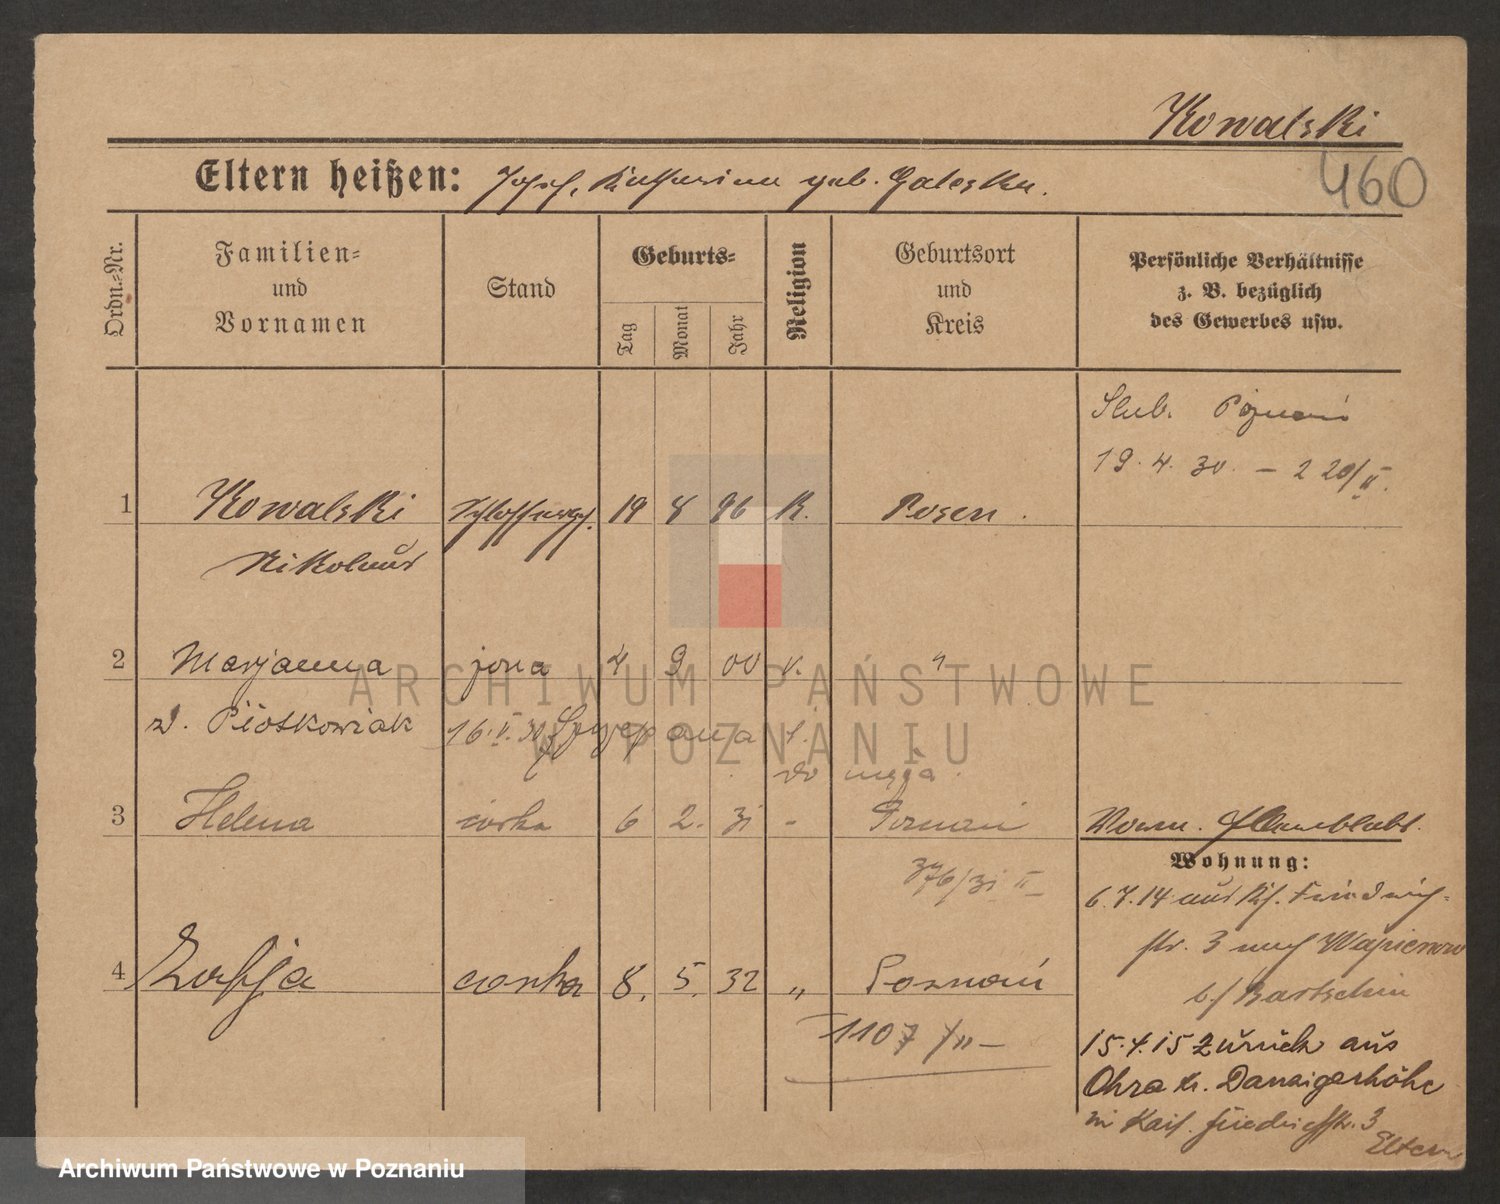 Kowalski
460
Eltern heißen: Josef, Katharina geb. Galeska.
Ordn.-Nr.
Familien-
und
Vornamen
Stand
Geburts-
Tag
Monat
Jahr
Religion
Geburtsort
und
Kreis
Persönliche Verhältnisse
z. B. bezüglich
des Gewerbes usw.
Slub. Poznań
19. 4. 30. – 2 20/II.
1 Kowalski Schlosserges. 19 8 96 K. Posen.
Nikolaus
2 Marjanna żona 4 9 00 k. "
z d. Piotrkowiak 16.V.30 Szczepana 1.
do męża.
3 Helena córka 6 2. 31 - Poznań
376/31 II
Worm.
Wohnung:
6.7.14 aus Ks. Friedrich-
str. 3 nach Wapienno
b/ Bartschin
4 Zofja corka 8. 5. 32 " Poznań
1107 /II –
15.4.15 zurück aus
Ohra Kr. Danzigerhöhe
in Kais. Friedrichstr. 3
Eltern
ARCHIWUM PAŃSTWOWE
W POZNANIU
Archiwum Państwowe w Poznaniu